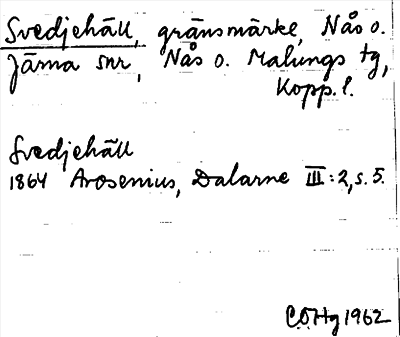 Svedjehäll, gränsmärke, Nås o.
Järna snr, Nås o. Malungs tg,
Kopp. l.
Svedjehäll
1864 Arosenius, Dalarne III:2, s. 5.
COHg 1962